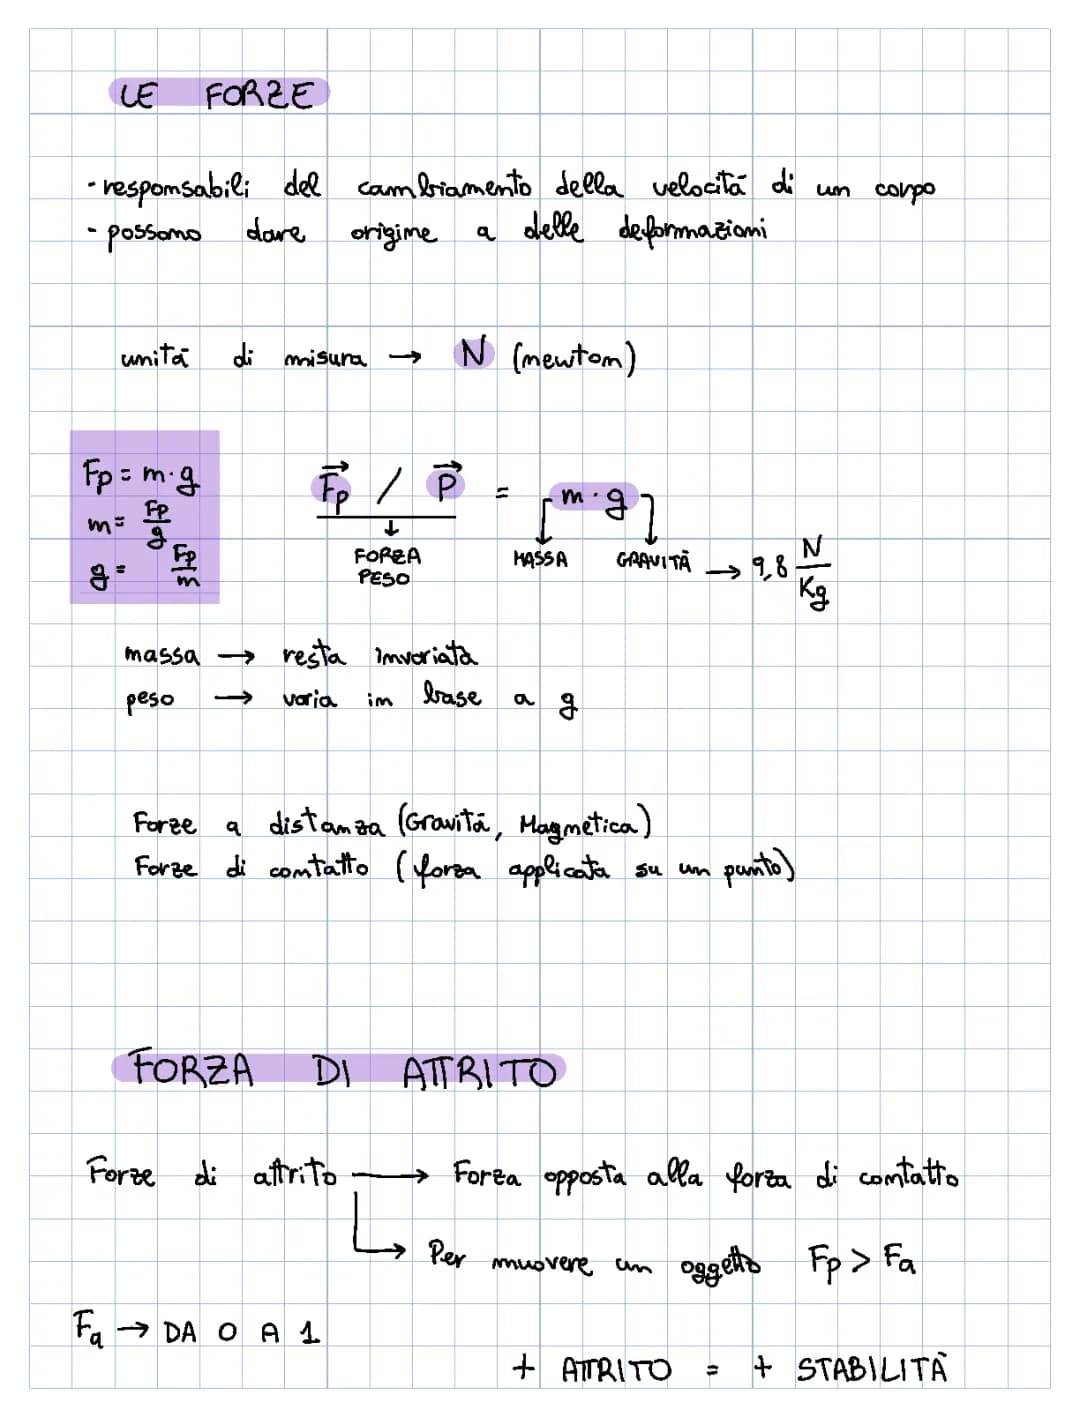 LE FORZE
- responsabili del cambiamento della velocità di un corpo
- possono dare origine a delle deformazioni
unità di misura → N (newton)
Fp = m·g
m = Fp/g
g = Fp/m
Fp / P = m·g
FORZA PESO
MASSA GRAVITÀ → 9,8 N/Kg
massa → resta invariata
peso → varia in base a g
Forze a distanza (Gravità, Magnetica)
Forze di contatto (forza applicata su un punto)
FORZA DI ATTRITO
Forze di attrito → Forza opposta alla forza di contatto
→ Per muovere un oggetto Fp > Fa
Fa → DA 0 A 1
+ ATTRITO = + STABILITÀ